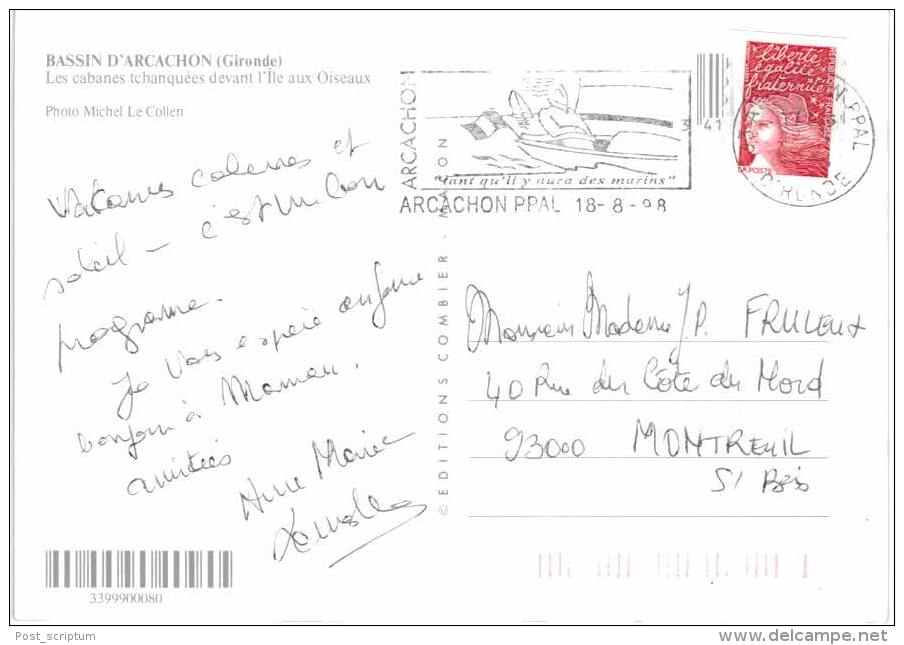 BASSIN D'ARCACHON (Gironde)
Les cabanes tchanquées devant l'Ile aux Oiseaux
Photo Michel Le Collen
Vacances calmes et
soleil - c'est un bon
programe.
Je vous espère en forme
bonjour à Maman.
amitiés
Anne Marie
ARCACHON
"tant qu'il y aura des marins"
ARCACHON PPAL 18-8-98
41
liberté
égalité
fraternité
REPUBLIQUE FRANCAISE
LA POSTE
PPAL
GIRONDE
© EDITIONS COMBIER - MACON
Monsieur Madame J.P. FRULEUX
40 Rue du Côte du Nord
93000 MONTREUIL
S/ Bois
3399900080
Post_scriptum
www.delcampe.net